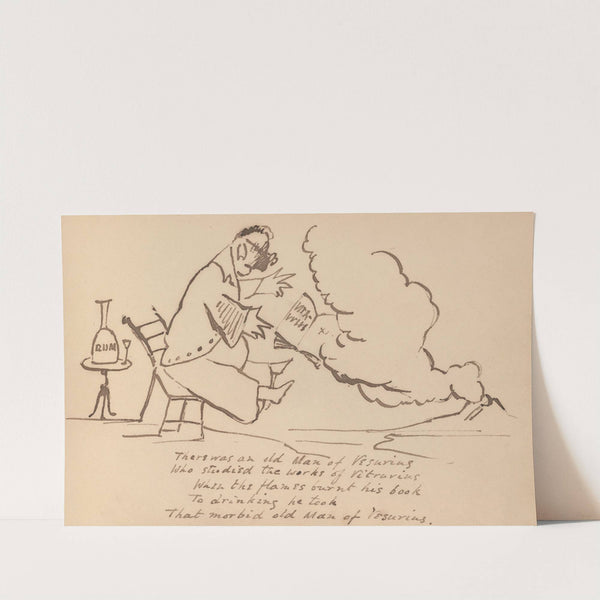 RUM
VITR-
UVIUS
There was an old Man of Vesuvius
Who studied the works of Vitruvius
When the flames burnt his book
To drinking he took
That morbid old Man of Vesuvius.